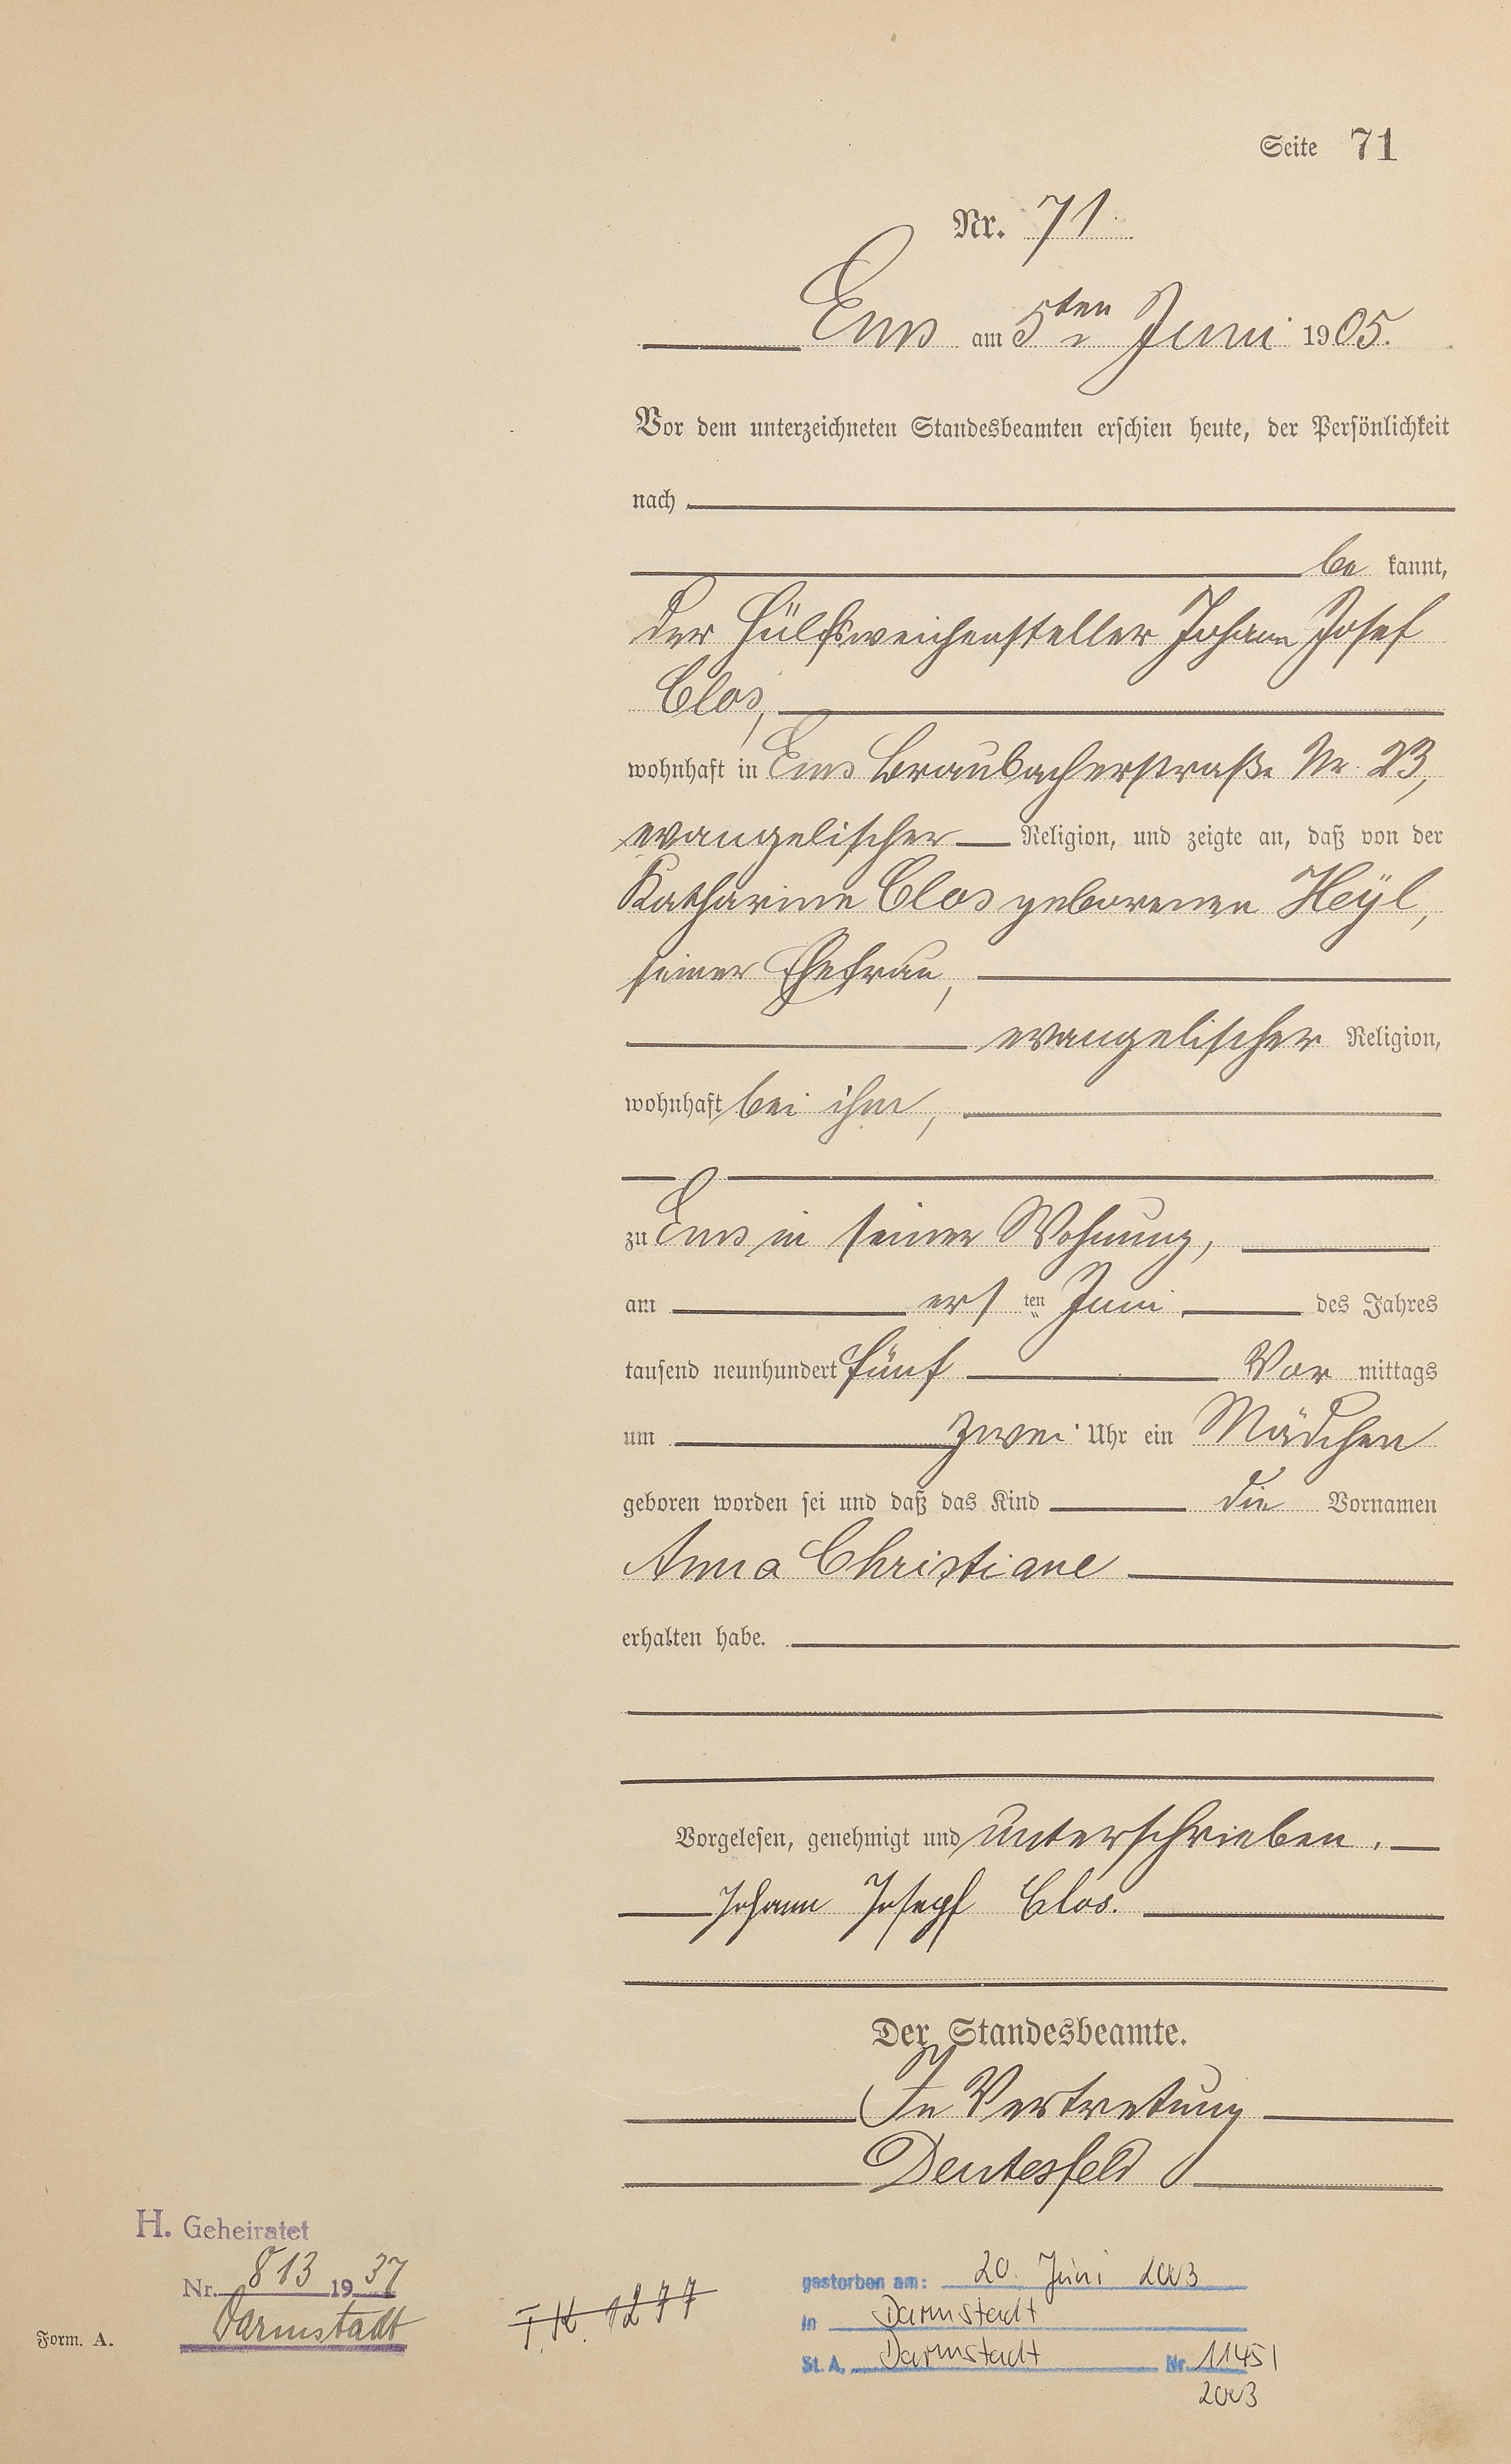 Seite 71
Nr. 71
Ems am 5ten Juni 1905.
Vor dem unterzeichneten Standesbeamten erschien heute, der Persönlichkeit
nach
be kannt,
der Hülfsweichensteller Johann Josef
Clos,
wohnhaft in Ems Braubacherstraße Nr. 23,
evangelischer Religion, und zeigte an, daß von der
Katharine Clos geborenen Heÿl,
seiner Ehefrau,
evangelischer Religion,
wohnhaft bei ihm,
zu Ems in seiner Wohnung,
am ersten Juni des Jahres
tausend neunhundert fünf Vor mittags
um zwei Uhr ein Mädchen
geboren worden sei und daß das Kind die Vornamen
Anna Christiane
erhalten habe.
Vorgelesen, genehmigt und unterschrieben.
Johann Josepf Clos.
Der Standesbeamte.
In Vertretung
Deutesfeld
H. Geheiratet
Nr. 813 1937
Darmstadt
Form. A.
T. K. 1277
gestorben am: 20. Juni 2003
in Darmstadt
St. A. Darmstadt Nr. 1145/
2003